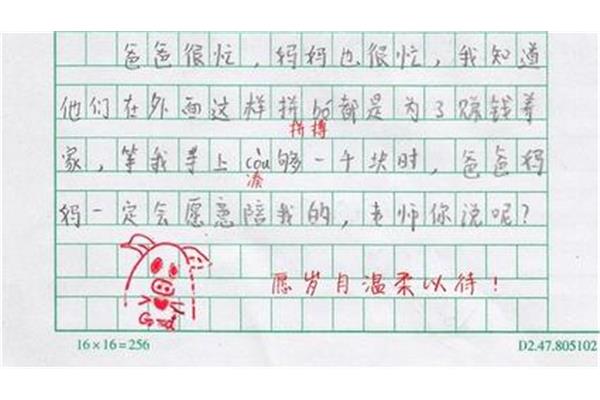 爸爸很忙，妈妈也很忙，我知道
他们在外面这样拼bó都是为了赚钱养
拼搏
家，等我手上còu够一千块时，爸爸妈
凑
妈一定会愿意陪我的，老师你说呢？
愿岁月温柔以待！
Good
16×16=256
D2.47.805102